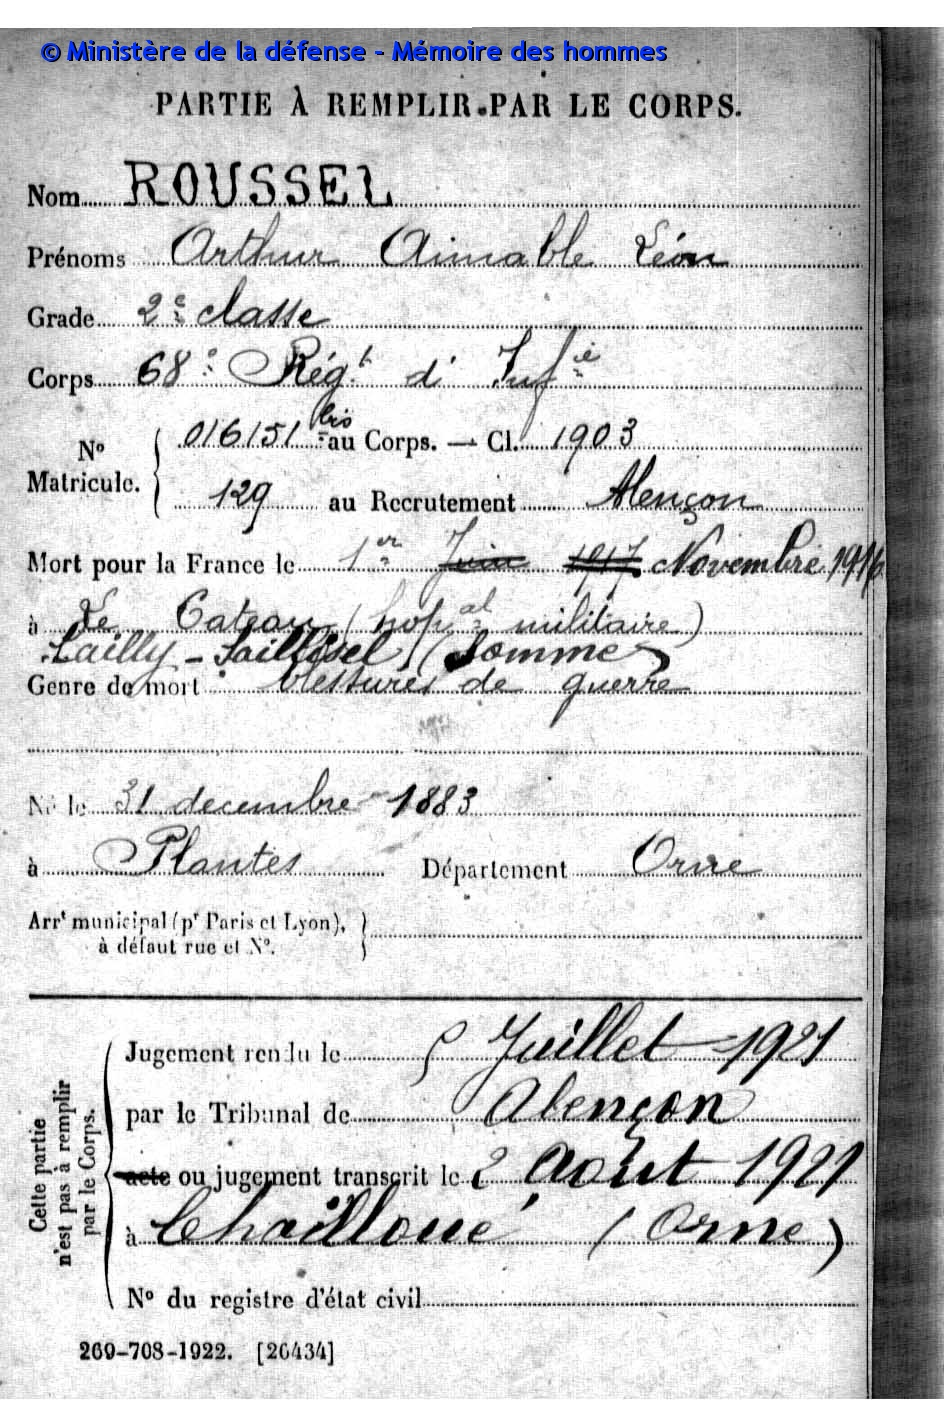 © Ministère de la défense - Mémoire des hommes
PARTIE À REMPLIR PAR LE CORPS.
Nom ROUSSEL
Prénoms Arthur Aimable Léon
Grade 2e classe
Corps 68e Régt d'Infie
No Matricule. 016151 bis au Corps. — Cl. 1903
129 au Recrutement Alençon
Mort pour la France le 1er Juin 1917 Novembre 1916
à Le Cateau (hopal militaire)
Sailly-Saillisel (Somme)
Genre de mort blessures de guerre
Né le 31 decembre 1883
à Plantes Département Orne
Arrt municipal (pr Paris et Lyon),
à défaut rue et No.
Cette partie n'est pas à remplir par le Corps.
Jugement rendu le 5 Juillet 1921
par le Tribunal de Alençon
acte ou jugement transcrit le 2 Août 1921
à Chailloué (Orne)
No du registre d'état civil
269-708-1922. [26434]